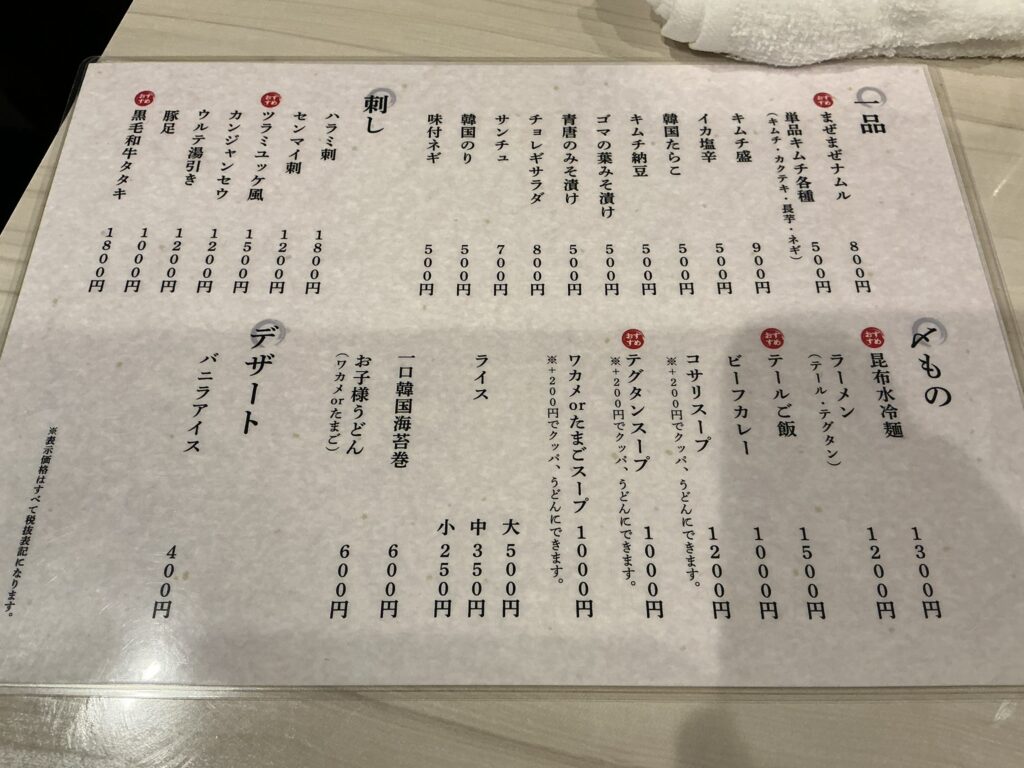 一品
おすすめ
まぜまぜナムル 800円
単品キムチ各種 500円
(キムチ・カクテキ・長芋・ネギ)
キムチ盛 900円
イカ塩辛 500円
韓国たらこ 500円
キムチ納豆 500円
ゴマの葉みそ漬け 500円
青唐のみそ漬け 500円
チョレギサラダ 800円
サンチュ 700円
韓国のり 500円
味付ネギ 500円
刺し
ハラミ刺 1800円
センマイ刺 1200円
おすすめ
ツラミユッケ風 1500円
カンジャンセウ 1200円
ウルテ湯引き 1200円
豚足 1000円
おすすめ
黒毛和牛タタキ 1800円
〆もの
おすすめ
昆布水冷麺 1300円
ラーメン 1200円
(テール・テグタン)
おすすめ
テールご飯 1500円
ビーフカレー 1000円
コサリスープ 1200円
※+200円でクッパ、うどんにできます。
おすすめ
テグタンスープ 1000円
※+200円でクッパ、うどんにできます。
ワカメorたまごスープ 1000円
※+200円でクッパ、うどんにできます。
ライス 大 500円
中 350円
小 250円
一口韓国海苔巻 600円
お子様うどん 600円
(ワカメorたまご)
デザート
バニラアイス 400円
※表示価格はすべて税抜表記になります。